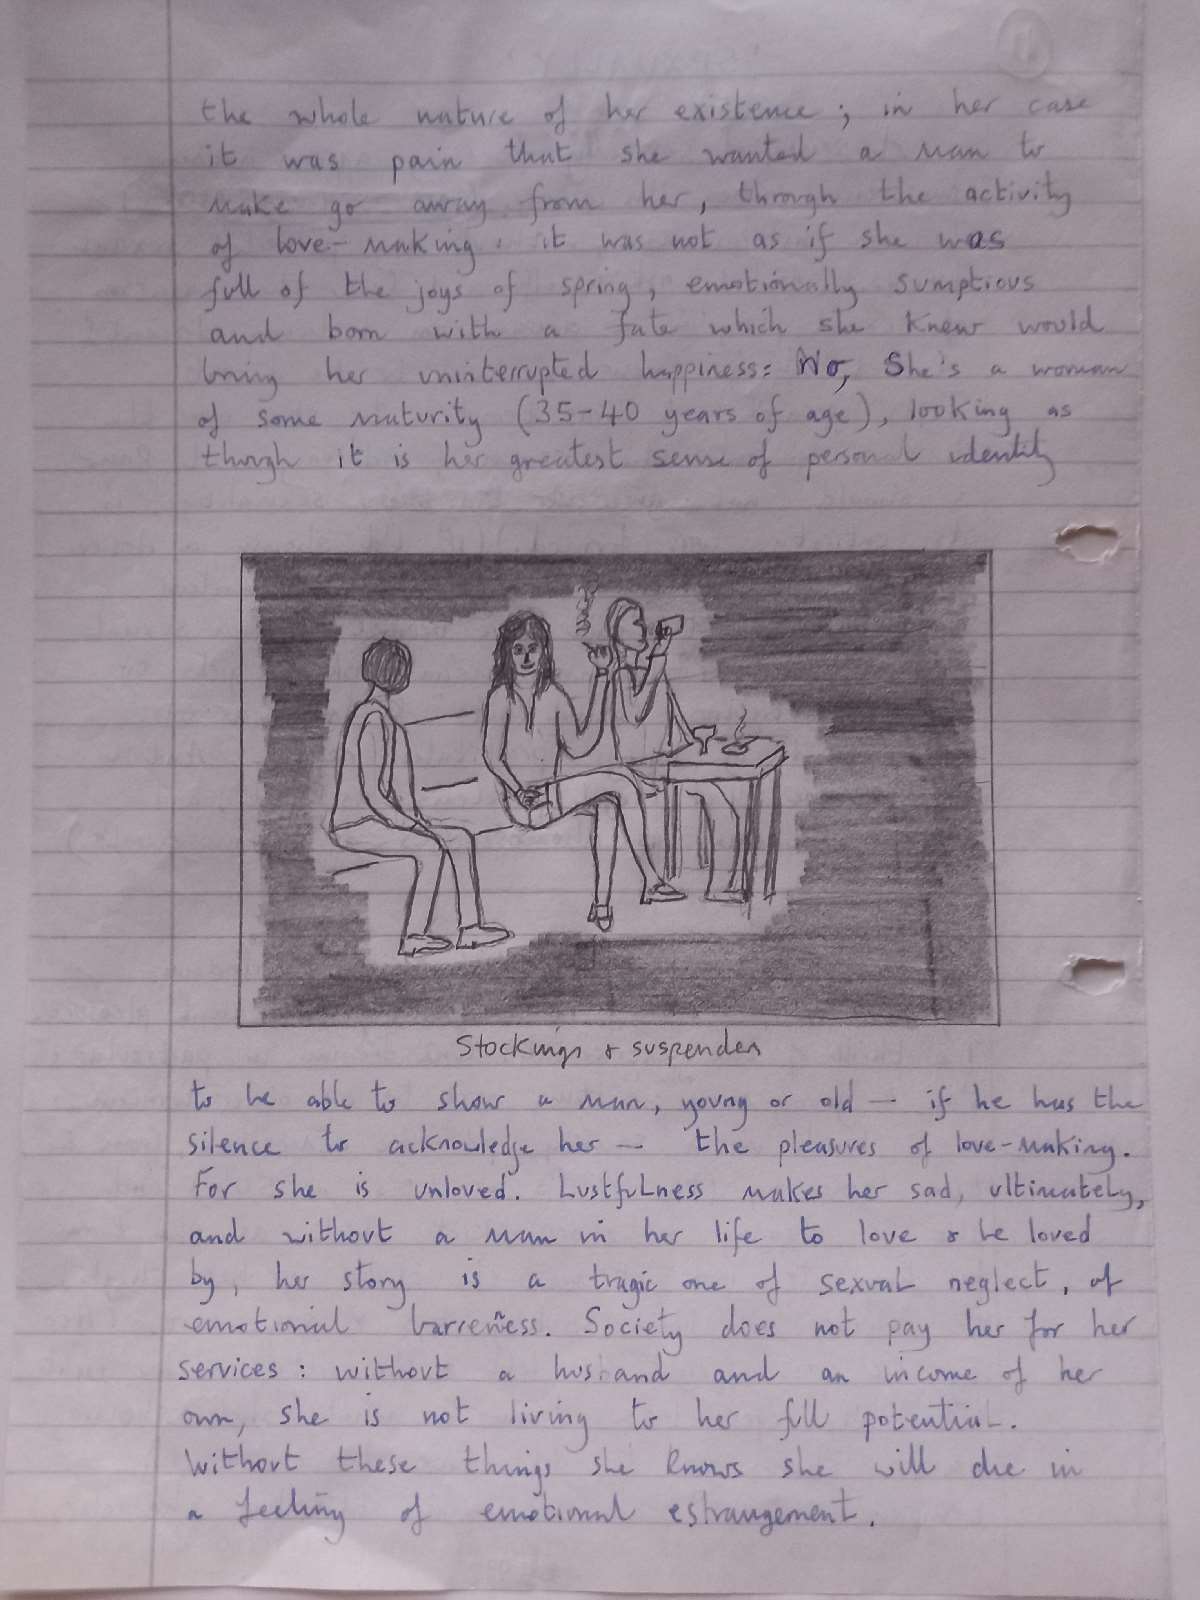 11
the whole nature of her existence; in her case
it was pain that she wanted a man to
make go away from her, through the activity
of love-making: it was not as if she was
full of the joys of spring, emotionally sumptious
and born with a fate which she knew would
bring her uninterrupted happiness: No, She's a woman
of some maturity (35-40 years of age), looking as
though it is her greatest sense of personal identity
Stockings & suspenders
to be able to show a man, young or old — if he has the
silence to acknowledge her — the pleasures of love-making.
For she is unloved. Lustfulness makes her sad, ultimately,
and without a man in her life to love & be loved
by, her story is a tragic one of sexual neglect, of
emotional barreness. Society does not pay her for her
services: without a husband and an income of her
own, she is not living to her full potential.
Without these things she knows she will die in
a feeling of emotional estrangement.